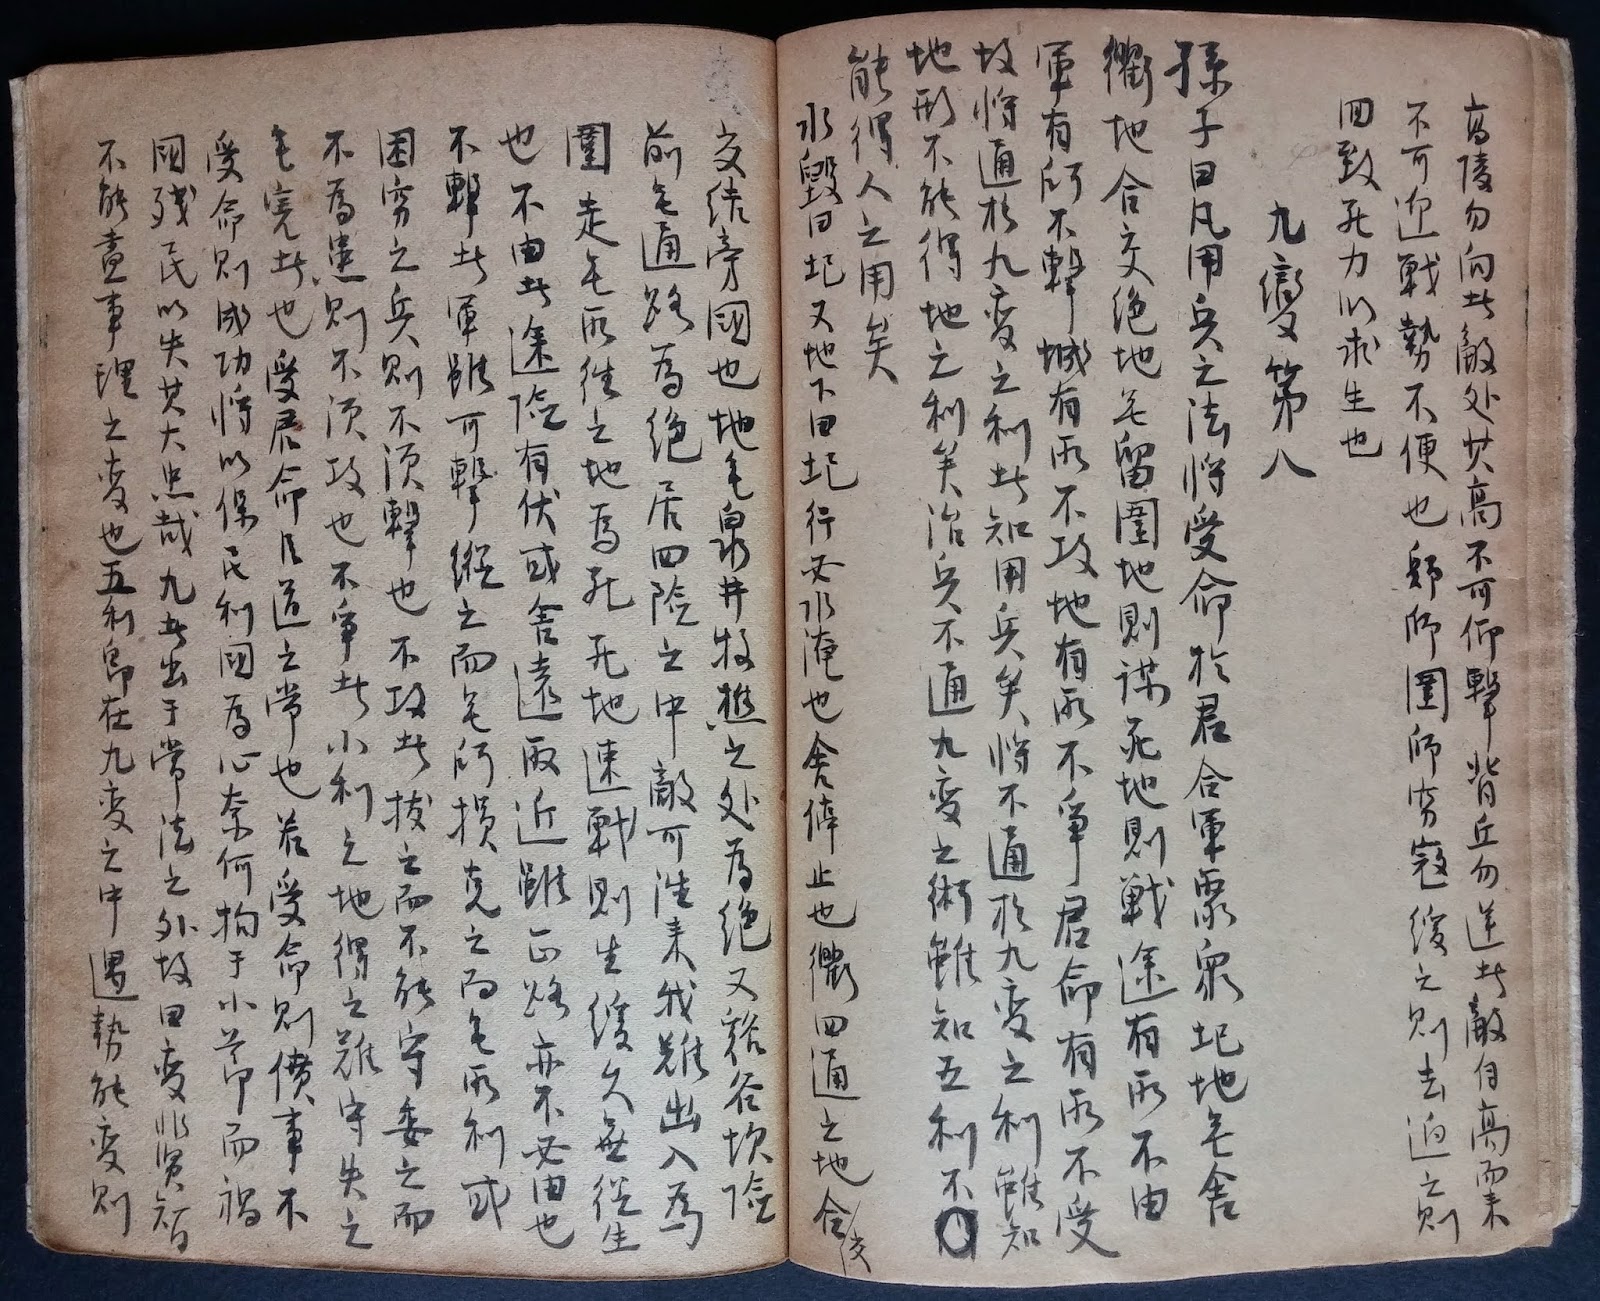 高陵勿向此敵处其高不可仰擊背丘勿逆此敵自高而来
不可迎戰勢不便也歸師圍師穷寇缓之則去迫之則
回致死力以求生也
九變第八
孫子曰凡用兵之法將受命於君合軍聚眾圮地无舍
衢地合交绝地无留圍地則谋死地則戰途有所不由
軍有所不擊城有所不攻地有所不爭君命有所不受
故將通於九变之利此知用兵矣將不通於九变之利雖知
地形不能得地之利矣治兵不通九变之術雖知五利不
能得人之用矣
水毁曰圮又地下曰圮行必水淹也舍停止也衢四通之地合交
交结旁國也地无泉井牧樵之处為绝又谿谷坎险
前无通路為绝居四险之中敵可往来我难出入為
圍走无所往之地為死死地速戰則生缓久無從生
也不由此途险有伏或舍遠取近雖正路亦不必由也
不擊此軍雖可擊縱之而无所损克之而无所利或
困穷之兵則不须擊也不攻此拔之而不能守委之而
不為患則不须攻也不爭此小利之地得之难守失之
无害此也受君命臣道之常也若受命則僨事不
受命則成功將以保民利國為心奈何拘于小节而禍
國残民以失其大忠哉九此出于常法之外故曰变非贤智
不能盡事理之变也五利即在九变之中遇勢能变則